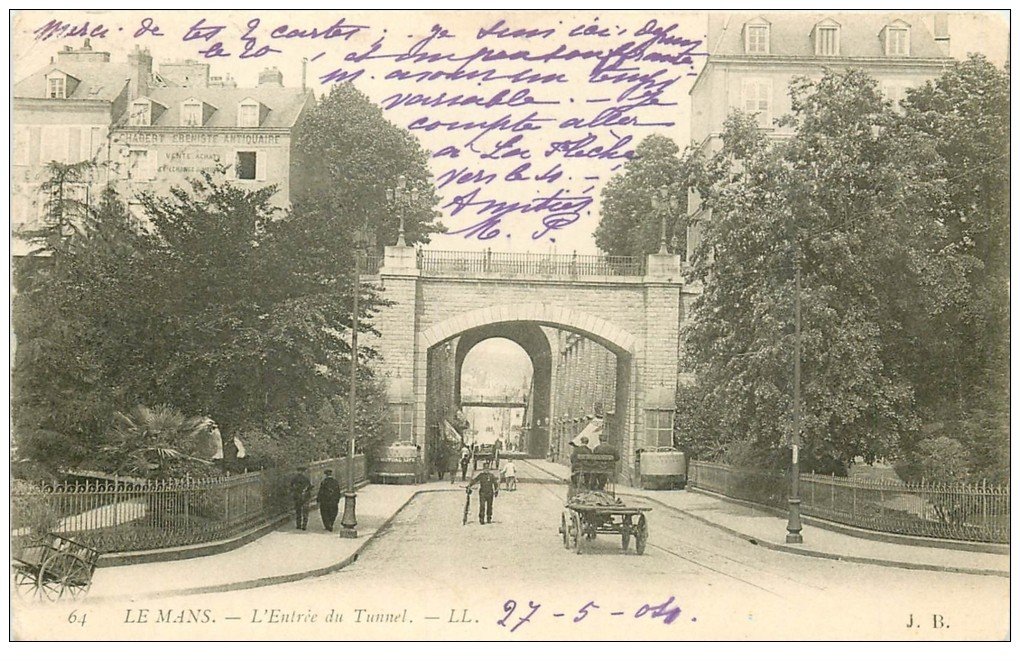 Merci de tes 2 cartes ; Je suis ici depuis
le 20,
M. avons un temps
variable. - Je
compte aller
à La Flèche
vers le 4. -
Amitiés
M. P.
CHABERT EBENISTE ANTIQUAIRE
VENTE ACHAT
ET ECHANGE
64 LE MANS. - L'Entrée du Tunnel. - LL. 27-5-04. J. B.